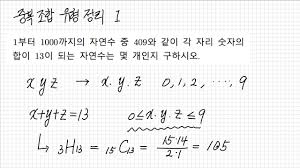 중복조합 유형 정리 I
1부터 1000까지의 자연수 중 409와 같이 각 자리 숫자의
합이 13이 되는 자연수는 몇 개인지 구하시오.
x y z → x. y. z 0, 1, 2, ⋯, 9
x+y+z=13 0≤x.y.z≤9
↳ ₃H₁₃ = ₁₅C₁₃ = 15·14/2·1 = 105